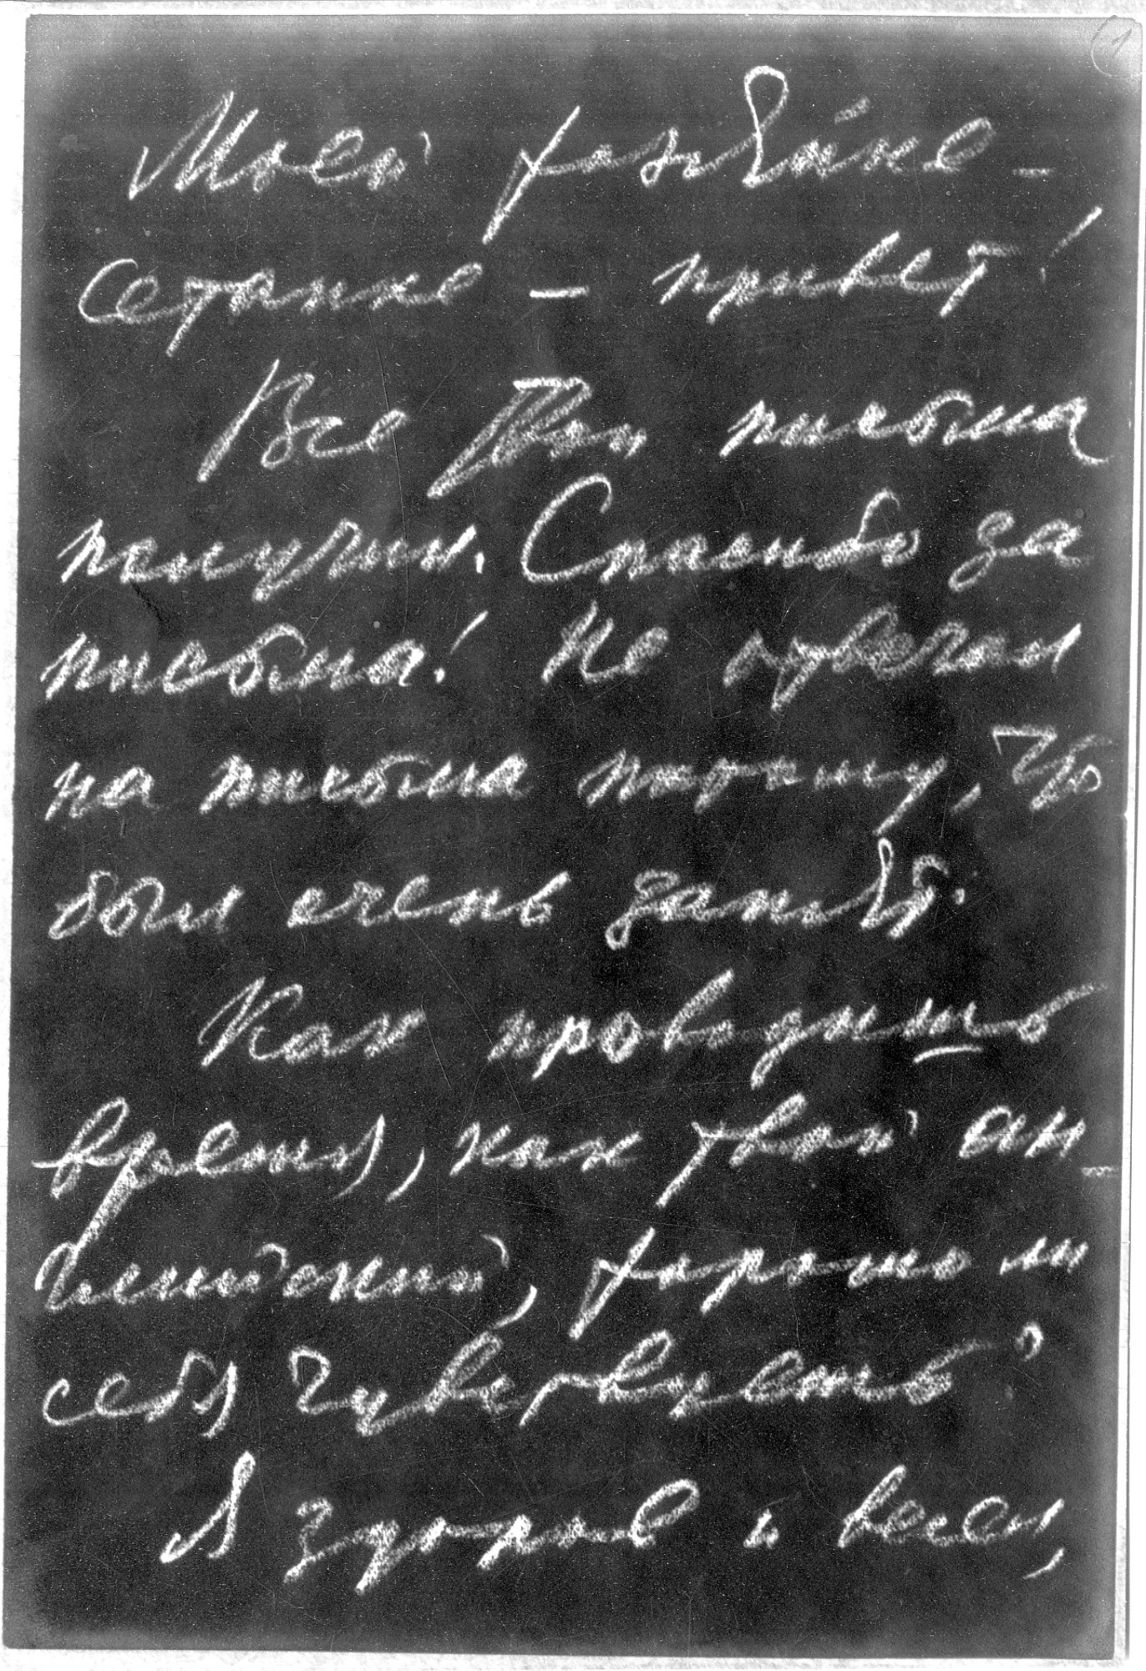 1
Моей хозяйке –
Сетанке – привет!
Все твои письма
получил. Спасибо за
письма! Не отвечал
на письма потому, что
был очень занят.
Как проводишь
время, как твой ан-
глийский, хорошо ли
себя чувствуешь?
Я здоров и весел,